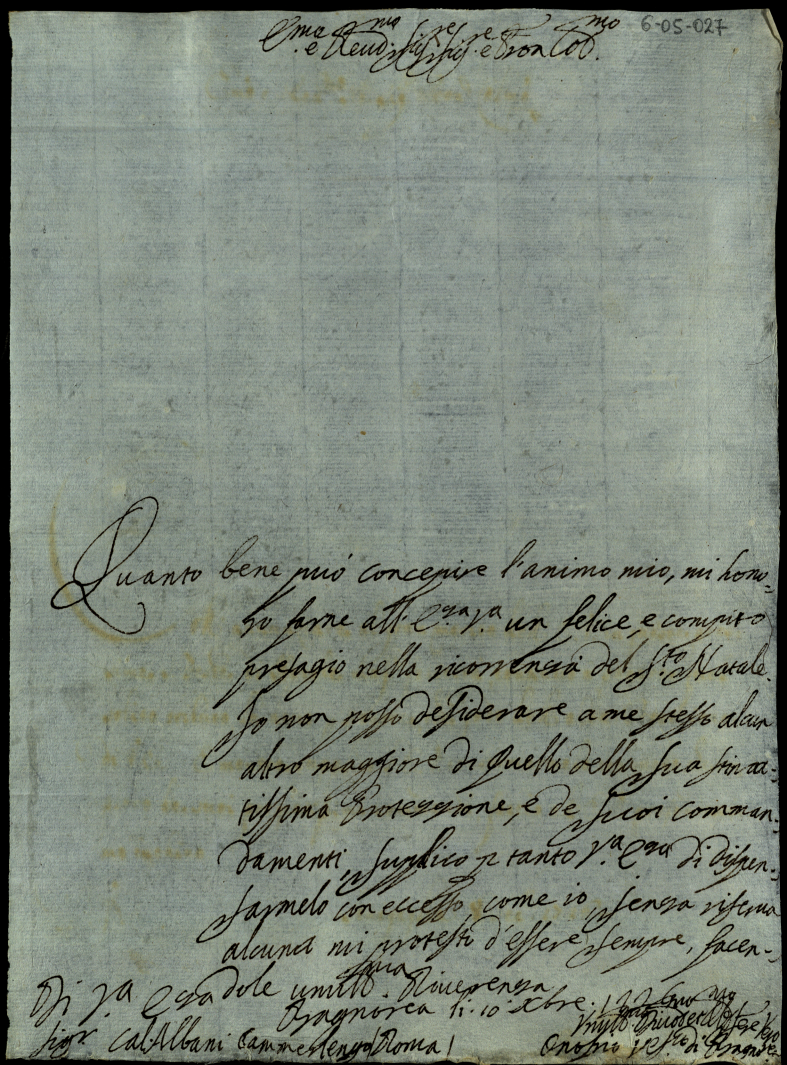 6-05-027
Em.mo e Rev.mo Sig.re Sig.re e Pron Col.mo
Quanto bene può concepire l'animo mio, mi hono-
ro farne all' E.za V.a un felice, e compito
presagio nella ricorrenza del S.to Natale.
Io non posso desiderare a me stesso alcun
altro maggiore di quello della sua stima-
tissima Protezzione, e de suoi comman-
damenti, supplico p tanto V.a E.za di dispen-
sarmelo con eccesso, come io senza riserva
alcuna mi protesto d'essere sempre, facen-
dole umill.ma Riverenza
Di V.a E.za
Bagnorea li 10 Xbre
Sig.r Cal Albani Cammerlengo Roma
Onofrio di Bagnorea